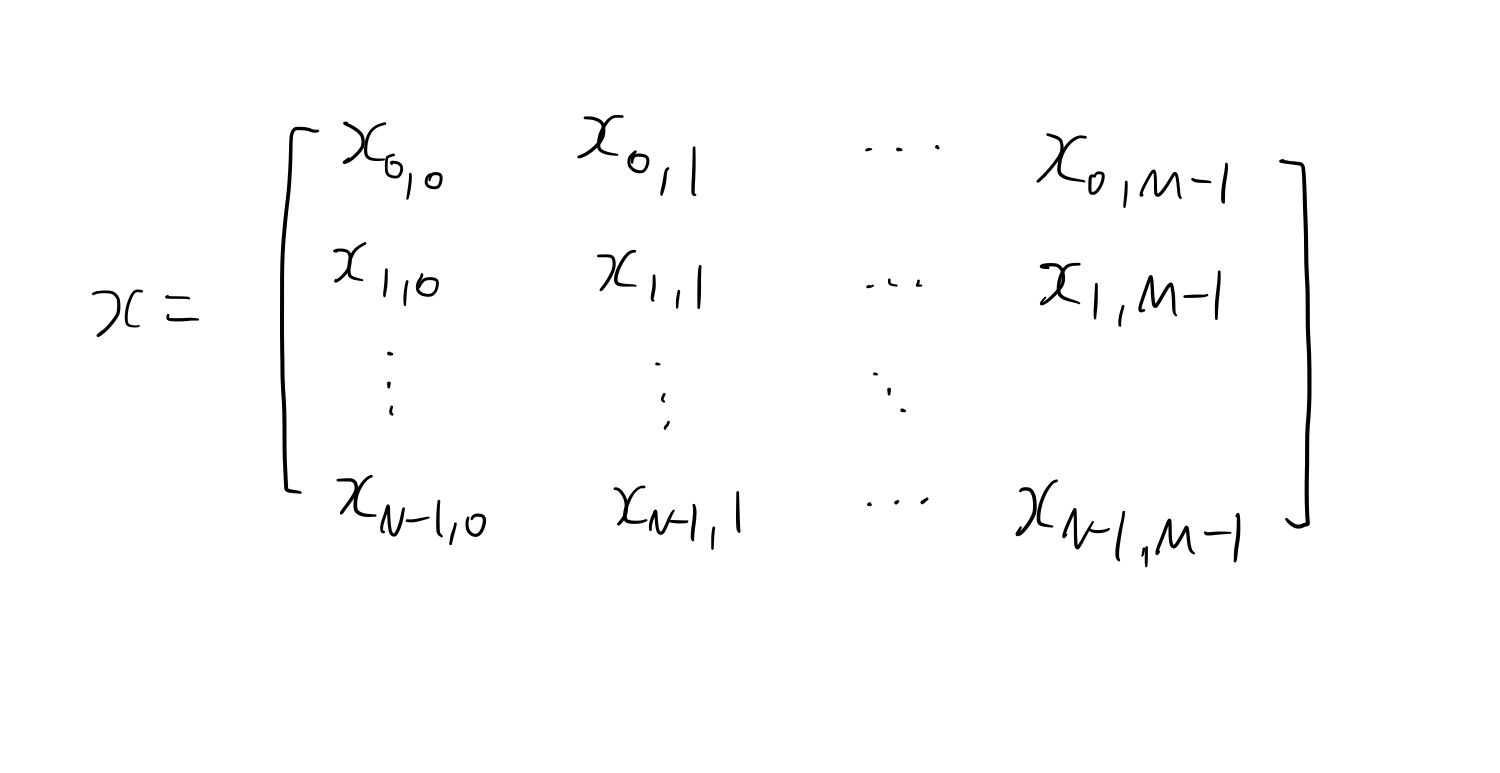 x = [ x_{0,0} x_{0,1} ... x_{0,M-1}
x_{1,0} x_{1,1} ... x_{1,M-1}
⋮ ⋮ ⋱
x_{N-1,0} x_{N-1,1} ... x_{N-1,M-1} ]